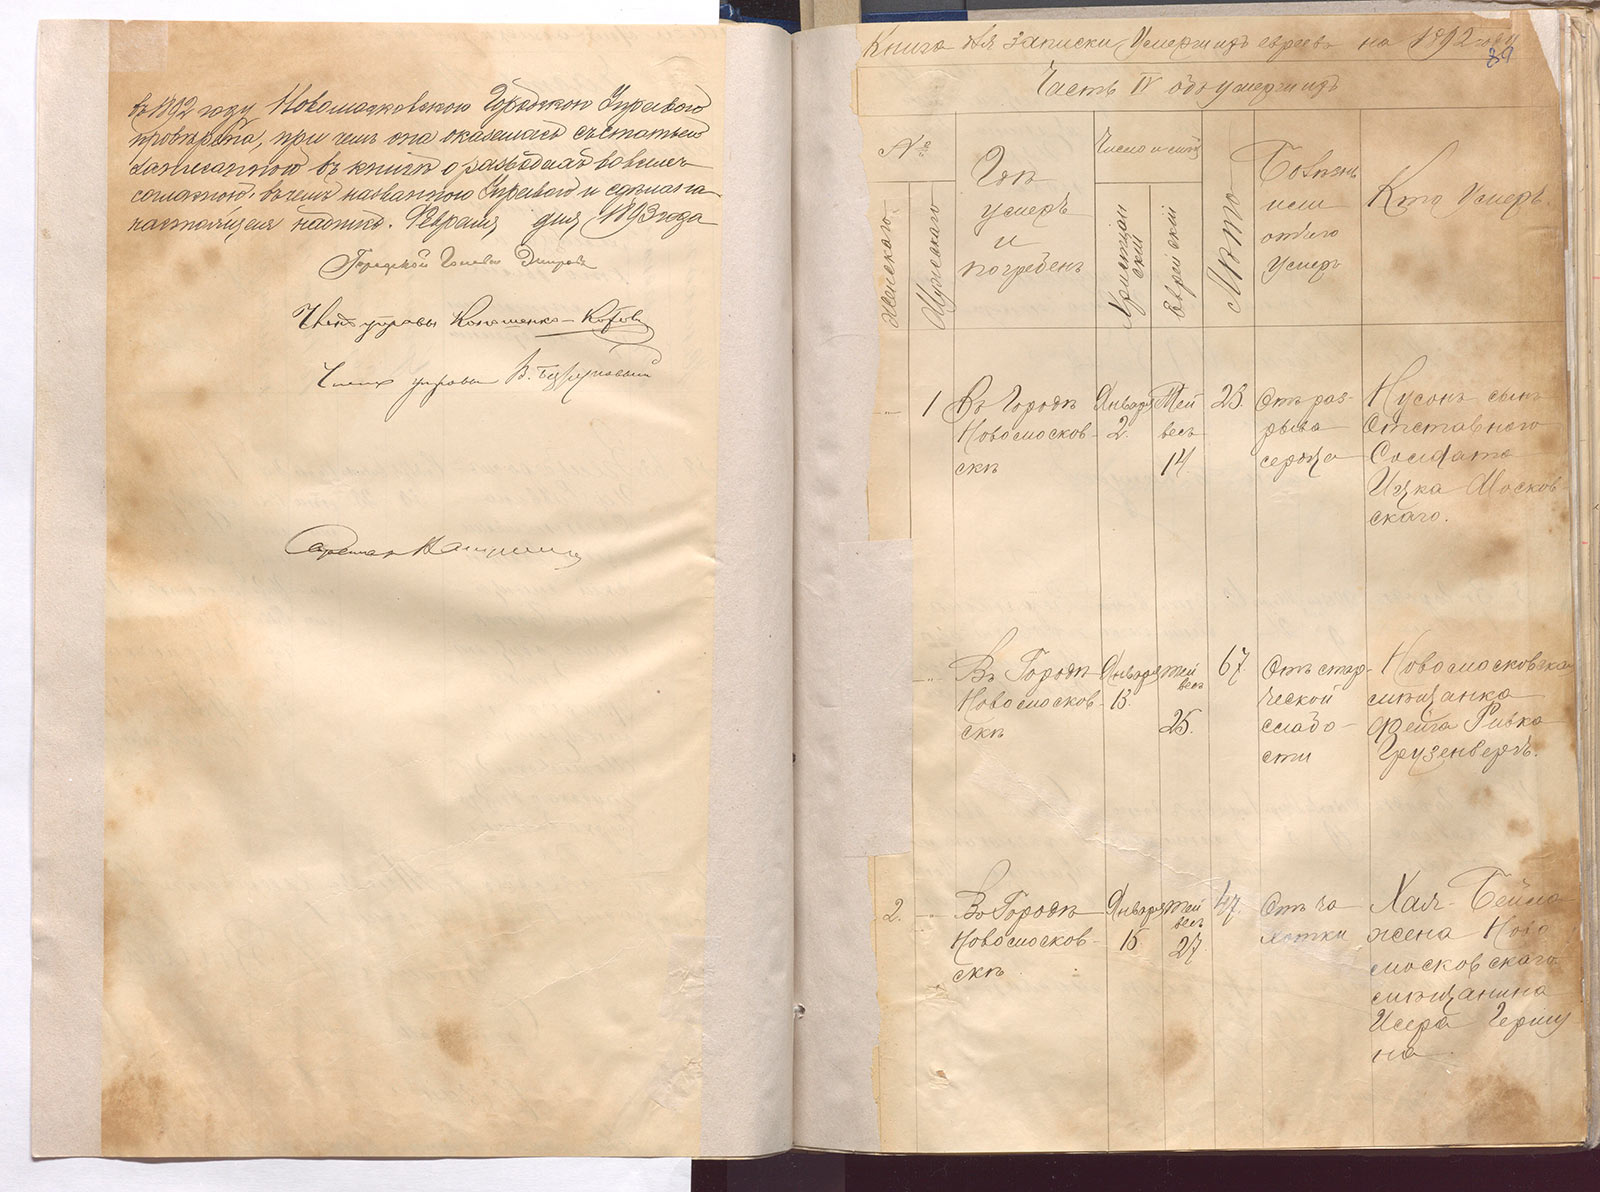 въ 1892 году Новомосковскою Городскою Управою
провѣрена, при чемъ она оказалась съ статьею
записанною въ книгѣ о разводахъ вовсемъ
согласною. въ чемъ названною Управою и сдѣлана
настоящая надпись. Февраля дня 1893 года
Городской Голова
Членъ управы Кономенко-Котов
Членъ управы В.
Секретарь
Книга для записки Умершихъ евреевъ на 1892 годъ
89
Часть IV объ умершихъ
№
Женскаго
Мужскаго
Гдѣ
умеръ
и
погребенъ
Число и мѣсяцъ
Христіан
ский
Еврейский
Лѣта
Болѣзнь
или
отъ чего
умеръ
Кто Умеръ.
1
Въ Городѣ
Новомосков-
скѣ
Января
2.
Тей
весъ
14
23.
Отъ раз-
рыва
сердца
Нусонъ сынъ
Отставного
Солдата
Ицка Москов-
скаго.
Въ Городѣ
Новомосков-
скѣ
Января
13.
Тей
весъ
25.
67
Отъ стар-
ческой
слабо-
сти
Новомосковская
мѣщанка
Фейга Ривка
Грузенбергъ.
2.
Въ Городѣ
Новомосков-
скѣ
Января
15
Тей
весъ
27.
47.
Отъ ча
хотки
Хая-Бейла
жена Ново
московскаго
мѣщанина
Исера
на